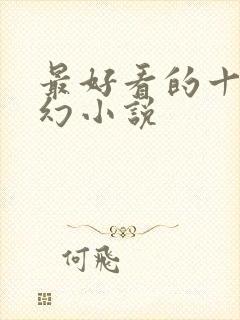 最好看的十
幻小说
何飛